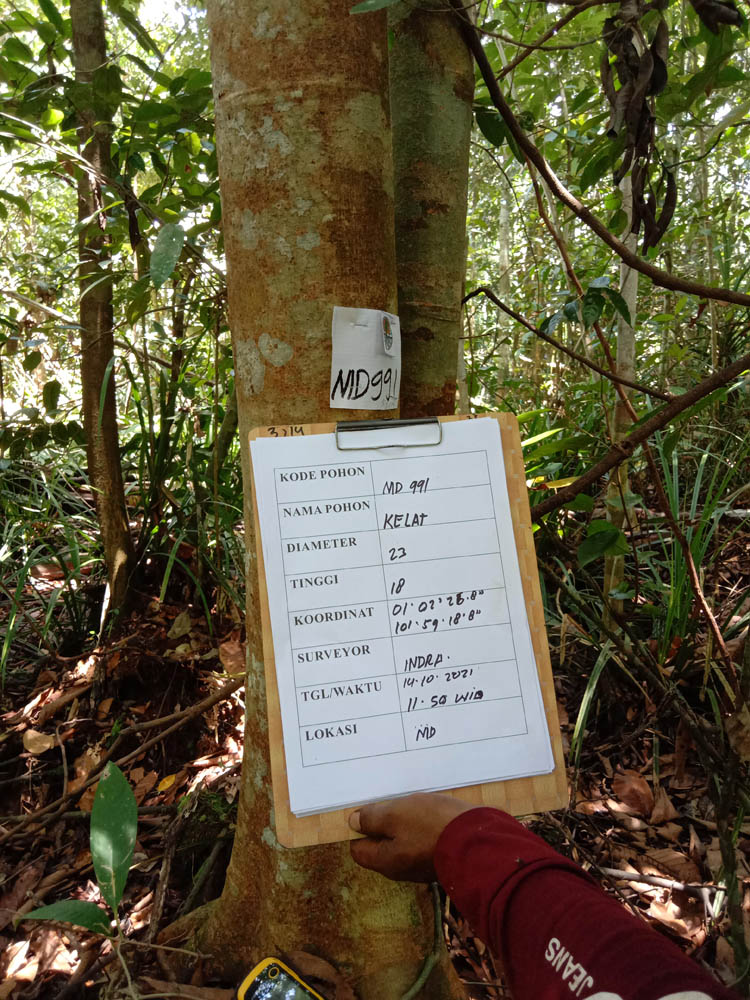 MD991
3,14
KODE POHON MD 991
NAMA POHON KELAT
DIAMETER 23
TINGGI 18
KOORDINAT 01°02'28.8"
101°59.18.8"
SURVEYOR INDRA.
TGL/WAKTU 14.10.2021
11.50 WIB
LOKASI MD
JEANS